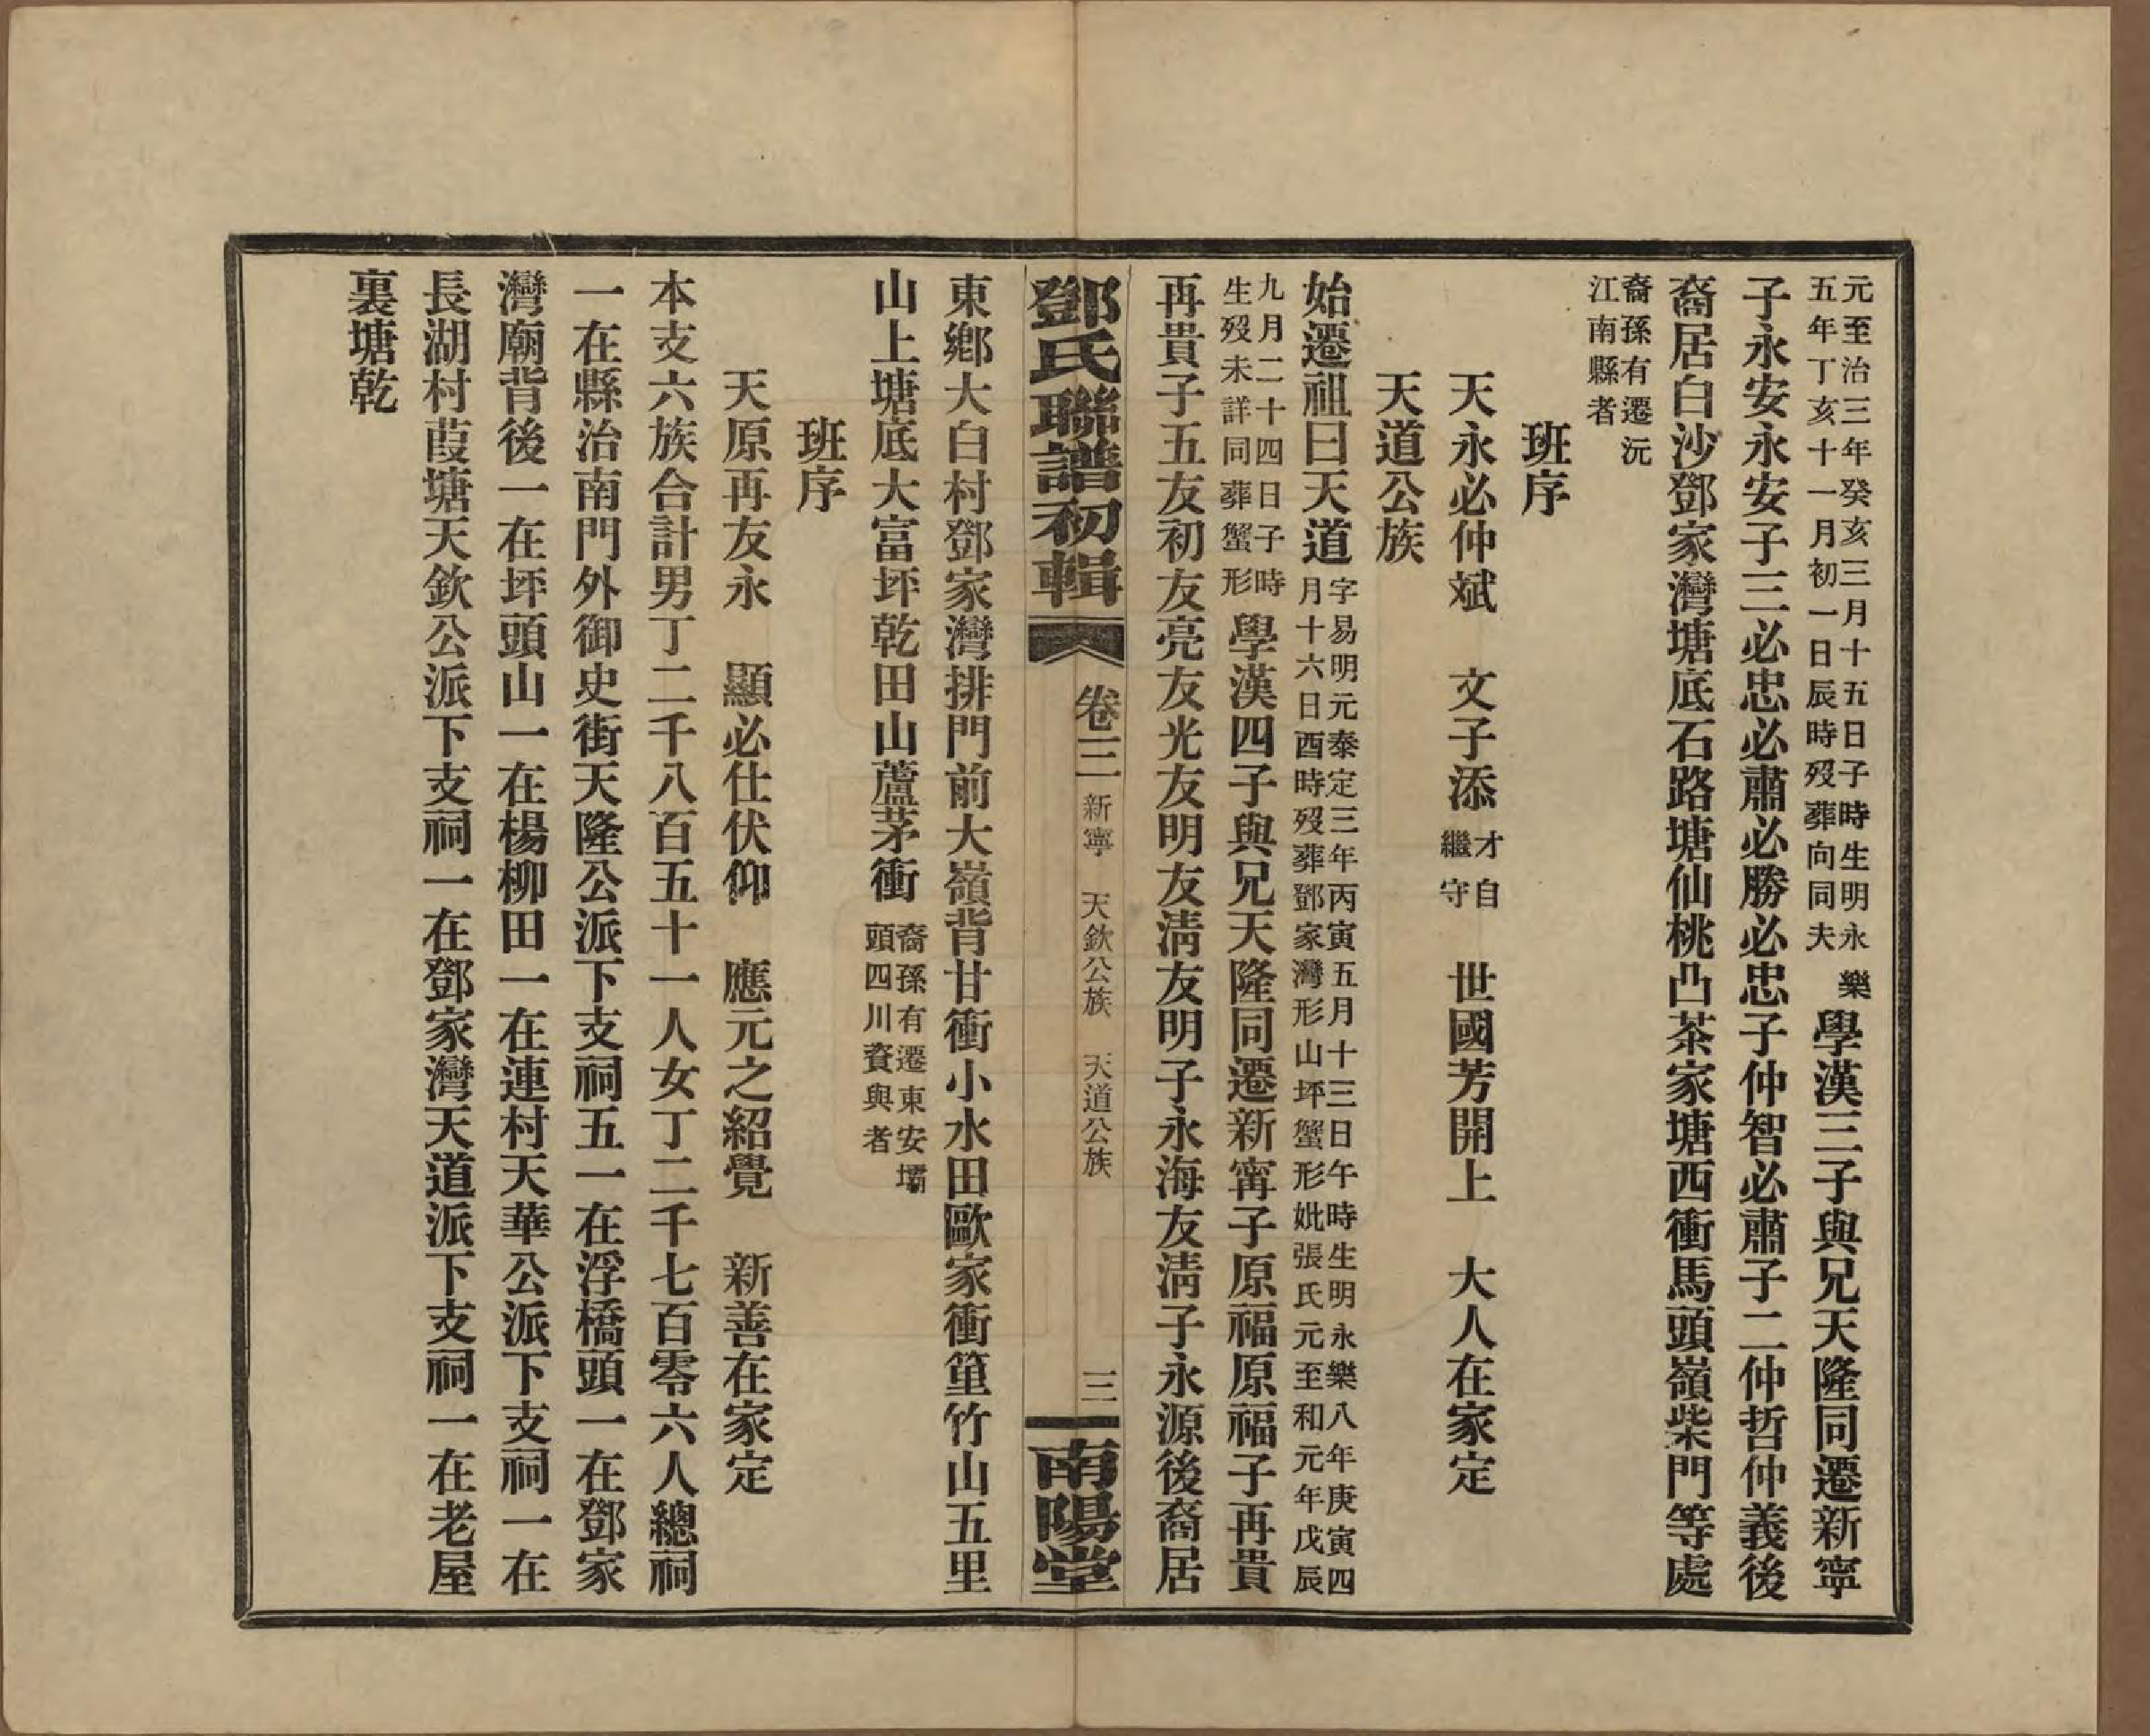 元至治三年癸亥三月十五日子時生明永樂
五年丁亥十一月初一日辰時歿葬向同夫
學漢三子與兄天隆同遷新寧
子永安永安子三必忠必肅必勝必忠子仲智必肅子二仲哲仲義後
裔居白沙鄧家灣塘底石路塘仙桃凸茶家塘西衝馬頭嶺柴門等處
裔孫有遷沅
江南縣者
班序
天永必仲斌　文子添
才自
繼守
世國芳開上　大人在家定
天道公族
始遷祖曰天道
字易明元泰定三年丙寅五月十三日午時生明永樂八年庚寅四
月十六日酉時歿葬鄧家灣形山坪蟹形妣張氏元至和元年戊辰
九月二十四日子時
生歿未詳同葬蟹形
學漢四子與兄天隆同遷新甯子原福原福子再貴
再貴子五友初友亮友光友明友清友明子永海友清子永源後裔居
鄧氏聯譜初輯
卷三
新寧　天欽公族　天道公族
三
南陽堂
東鄉大白村鄧家灣排門前大嶺背甘衝小水田歐家衝筀竹山五里
山上塘底大富坪乾田山蘆茅衝
裔孫有遷東安壩
頭四川資與者
班序
天原再友永　顯必仕伏仰　應元之紹覺　新善在家定
本支六族合計男丁二千八百五十一人女丁二千七百零六人總祠
一在縣治南門外御史街天隆公派下支祠五一在浮橋頭一在鄧家
灣廟背後一在坪頭山一在楊柳田一在連村天華公派下支祠一在
長湖村葭塘天欽公派下支祠一在鄧家灣天道派下支祠一在老屋
裏塘乾